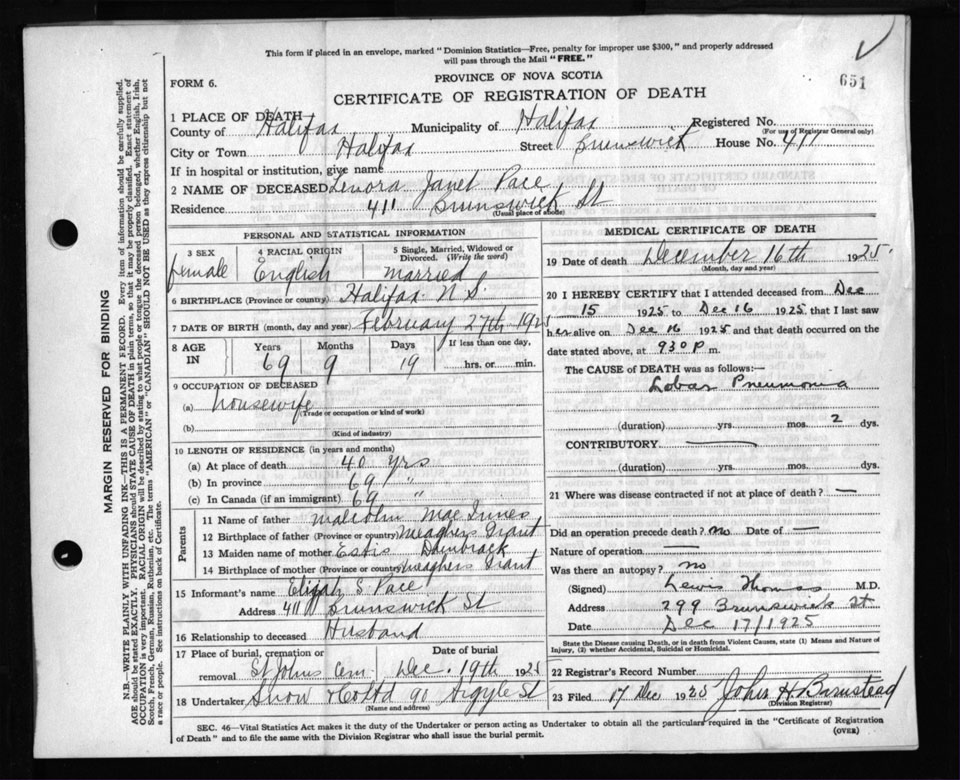 This form if placed in an envelope, marked "Dominion Statistics—Free, penalty for improper use $300," and properly addressed
will pass through the Mail "FREE."
651
FORM 6.
PROVINCE OF NOVA SCOTIA
CERTIFICATE OF REGISTRATION OF DEATH
1 PLACE OF DEATH
County of Halifax Municipality of Halifax Registered No.
(For use of Registrar General only)
City or Town Halifax Street Brunswick House No. 411
If in hospital or institution, give name
2 NAME OF DECEASED Lenora Janet Pace
Residence 411 Brunswick St
(Usual place of abode)
PERSONAL AND STATISTICAL INFORMATION
3 SEX 4 RACIAL ORIGIN 5 Single, Married, Widowed or Divorced. (Write the word)
female English married
6 BIRTHPLACE (Province or country) Halifax N.S.
7 DATE OF BIRTH (month, day and year) February 27th
8 AGE IN Years Months Days If less than one day,
69 9 19 hrs. or min.
9 OCCUPATION OF DECEASED
(a) housewife
(Trade or occupation or kind of work)
(b)
(Kind of industry)
10 LENGTH OF RESIDENCE (in years and months)
(a) At place of death 40 yrs
(b) In province 69 "
(c) In Canada (if an immigrant) 69 "
Parents
11 Name of father Malcolm MacInnes
12 Birthplace of father (Province or country) Meaghers Grant
13 Maiden name of mother
14 Birthplace of mother (Province or country) Meaghers Grant
15 Informant's name Elijah S. Pace
Address 411 Brunswick St
16 Relationship to deceased Husband
17 Place of burial, cremation or removal Date of burial
St Johns Cem. Dec. 19th 1925
18 Undertaker Snow & Co Ltd 90 Argyle St
(Name and address)
MEDICAL CERTIFICATE OF DEATH
19 Date of death December 16th 1925
(Month, day and year)
20 I HEREBY CERTIFY that I attended deceased from Dec
15 1925 to Dec 16 1925 that I last saw
her alive on Dec 16 1925 and that death occurred on
date stated above, at 930 P m.
The CAUSE OF DEATH was as follows:—
Lobar Pneumonia
(duration) yrs. mos. 2 dys.
CONTRIBUTORY —
(duration) yrs. mos. dys.
21 Where was disease contracted if not at place of death? —
Did an operation precede death? no Date of —
Nature of operation —
Was there an autopsy? no
(Signed) Lewis Thomas M.D.
Address 299 Brunswick St
Date Dec 17/1925
State the Disease causing Death, or in death from Violent Causes, state (1) Means and Nature of
Injury, (2) whether Accidental, Suicidal or Homicidal.
22 Registrar's Record Number
23 Filed 17 Dec 1925 John H Barnstead
(Division Registrar)
SEC. 46—Vital Statistics Act makes it the duty of the Undertaker or person acting as Undertaker to obtain all the particulars required in the "Certificate of Registration
of Death" and to file the same with the Division Registrar who shall issue the burial permit.
(OVER)
MARGIN RESERVED FOR BINDING
N.B.—WRITE PLAINLY WITH UNFADING INK—THIS IS A PERMANENT RECORD. Every item of information should be carefully supplied.
AGE should be stated EXACTLY. PHYSICIANS should STATE CAUSE OF DEATH in plain terms, so that it may be properly classified. Exact statement of
OCCUPATION is very important. RACIAL ORIGIN will be described by stating to what people or tongue the deceased person belonged, whether English, Irish,
Scotch, French, German, Russian, Ruthenian, etc. The terms "AMERICAN" or "CANADIAN" SHOULD NOT BE USED as they express citizenship but not
a race or people. See instructions on back of Certificate.